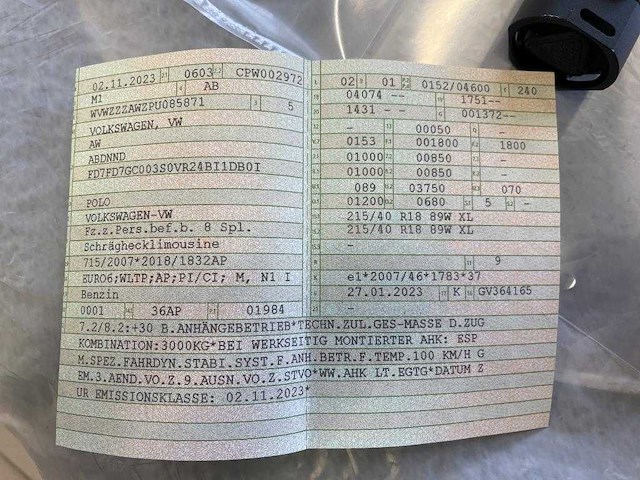 02.11.2023 0603 CPW002972
M1 AB
WVWZZZAWZPU085871 5
VOLKSWAGEN, VW
AW
ABDNND
FD7FD7GC003S0VR24BI1DB0I
POLO
VOLKSWAGEN-VW
Fz.z.Pers.bef.b. 8 Spl.
Schräghecklimousine
715/2007*2018/1832AP
EURO6;WLTP;AP;PI/CI; M, N1 I
Benzin
0001 36AP 01984
02 01 0152/04600 240
04074 -- 1751--
1431 - - 001372--
- 00050 -
0153 001800 1800
01000 00850 -
01000 00850 -
089 03750 070
01200 0680 5 -
215/40 R18 89W XL
215/40 R18 89W XL
-
- 9
e1*2007/46*1783*37
27.01.2023 K GV364165
-
7.2/8.2:+30 B.ANHÄNGEBETRIEB*TECHN.ZUL.GES-MASSE D.ZUG
KOMBINATION:3000KG*BEI WERKSEITIG MONTIERTER AHK: ESP
M.SPEZ.FAHRDYN.STABI.SYST.F.ANH.BETR.F.TEMP.100 KM/H G
EM.3.AEND.VO.Z.9.AUSN.VO.Z.STVO*WW.AHK LT.EGTG*DATUM Z
UR EMISSIONSKLASSE: 02.11.2023*